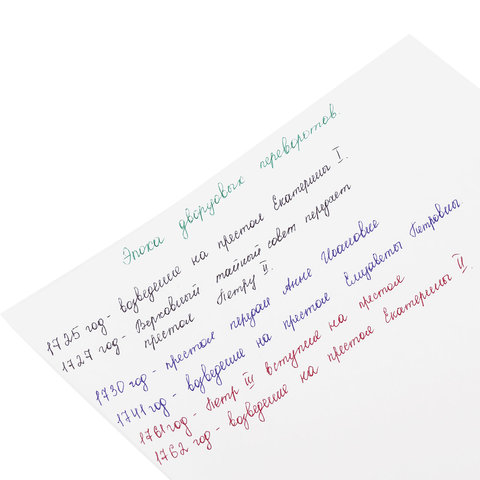 Эпоха дворцовых переворотов.
1725 год - возведение на престол Екатерины I.
1727 год - Верховный тайный совет передает
престол Петру II.
1730 год - престол передали Анне Иоановне
1741 год - возведение на престол Елизаветы Петровны
1761 год - Петр III вступил на престол
1762 год - возведение на престол Екатерины II.